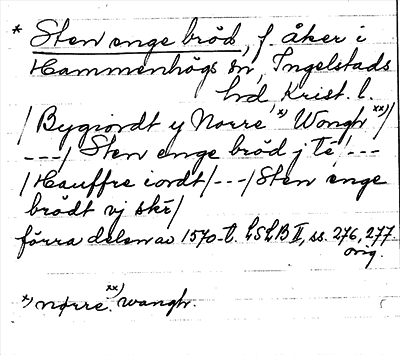 * Sten enge bröd, f. åker i
Hammenhögs sn, Ingelstads
hd, Krist. l.
/ Bygiordt y Norre x) Wongh xx) /
---/ Sten enge bröd j té /---
/ Hauffre iordt /---/ Sten enge
brödt vj skē /
förra delen av 1570-t. LSLB II, ss. 276, 277.
orig.
x) nørre. xx) wangh.